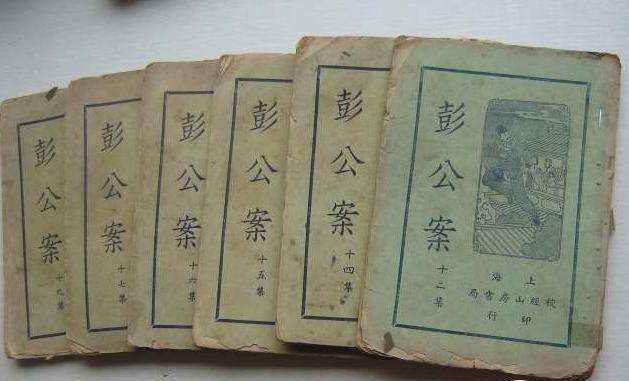 彭公案
十九集
彭公案
十七集
彭公案
十六集
彭公案
十五集
彭公案
十四集
彭公案
十二集
上海
校經山房書局
印行